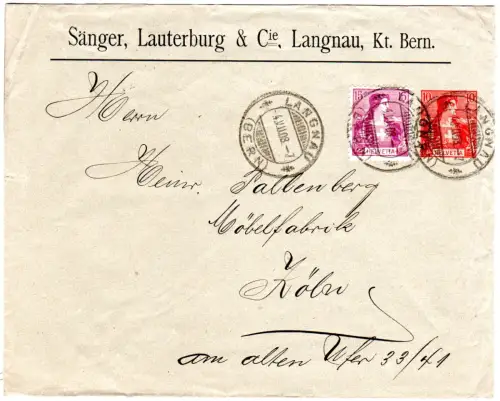 Sänger, Lauterburg & Cie, Langnau, Kt. Bern.
LANGNAU
(BERN)
15
HELVETIA
10
HELVETIA
LANGNAU
Herrn
Heinr. Pallenberg
Möbelfabrik
Köln
am alten Ufer 33/41